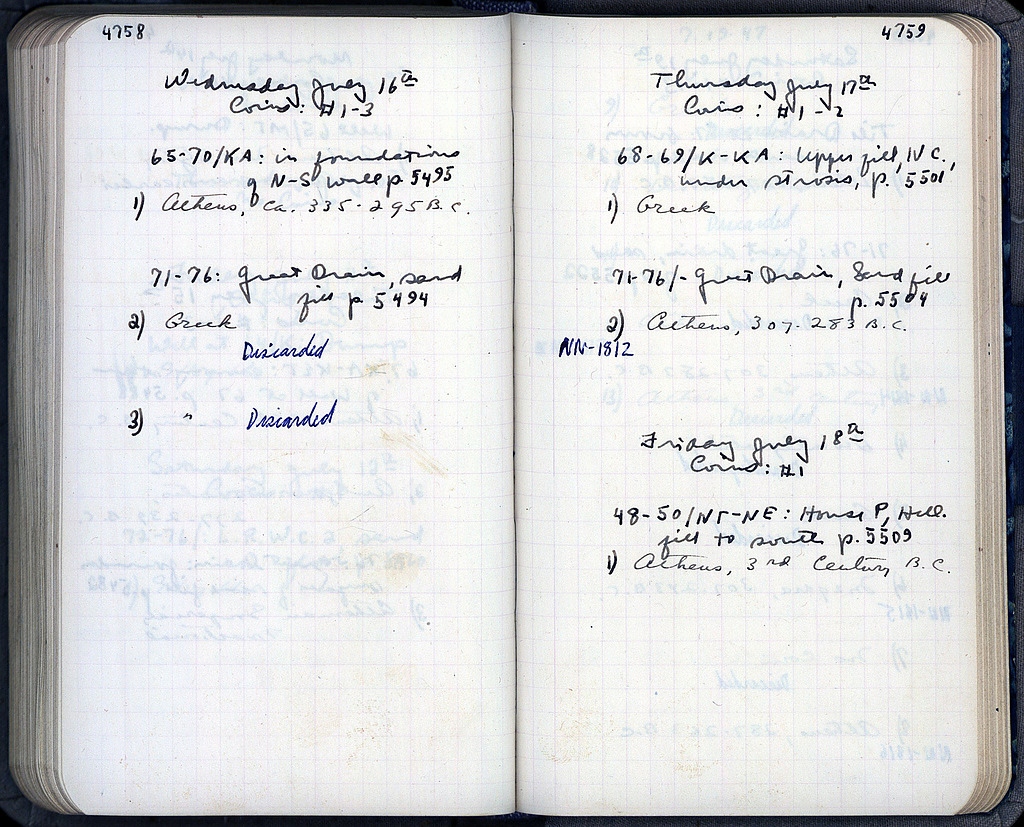 4758
Wednesday July 16th
Coins: #1-3
65-70/KA: in foundations
of N-S wall p 5495
1) Athens, Ca. 335-295 B.C.
71-76: Great Drain, sand
fill p 5494
2) Greek
Discarded
3) " Discarded
4759
Thursday July 17th
Coins: #1-2
68-69/K-KA: Upper fill, IV C.,
under strosis, p. 5501
1) Greek
71-76/- Great Drain, Sand fill
p. 5504
2) Athens, 307-283 B.C.
NN-1812
Friday July 18th
Coins: #1
48-50/NΓ-NE: House P, Hell.
fill to south p. 5509
1) Athens, 3rd Century B.C.